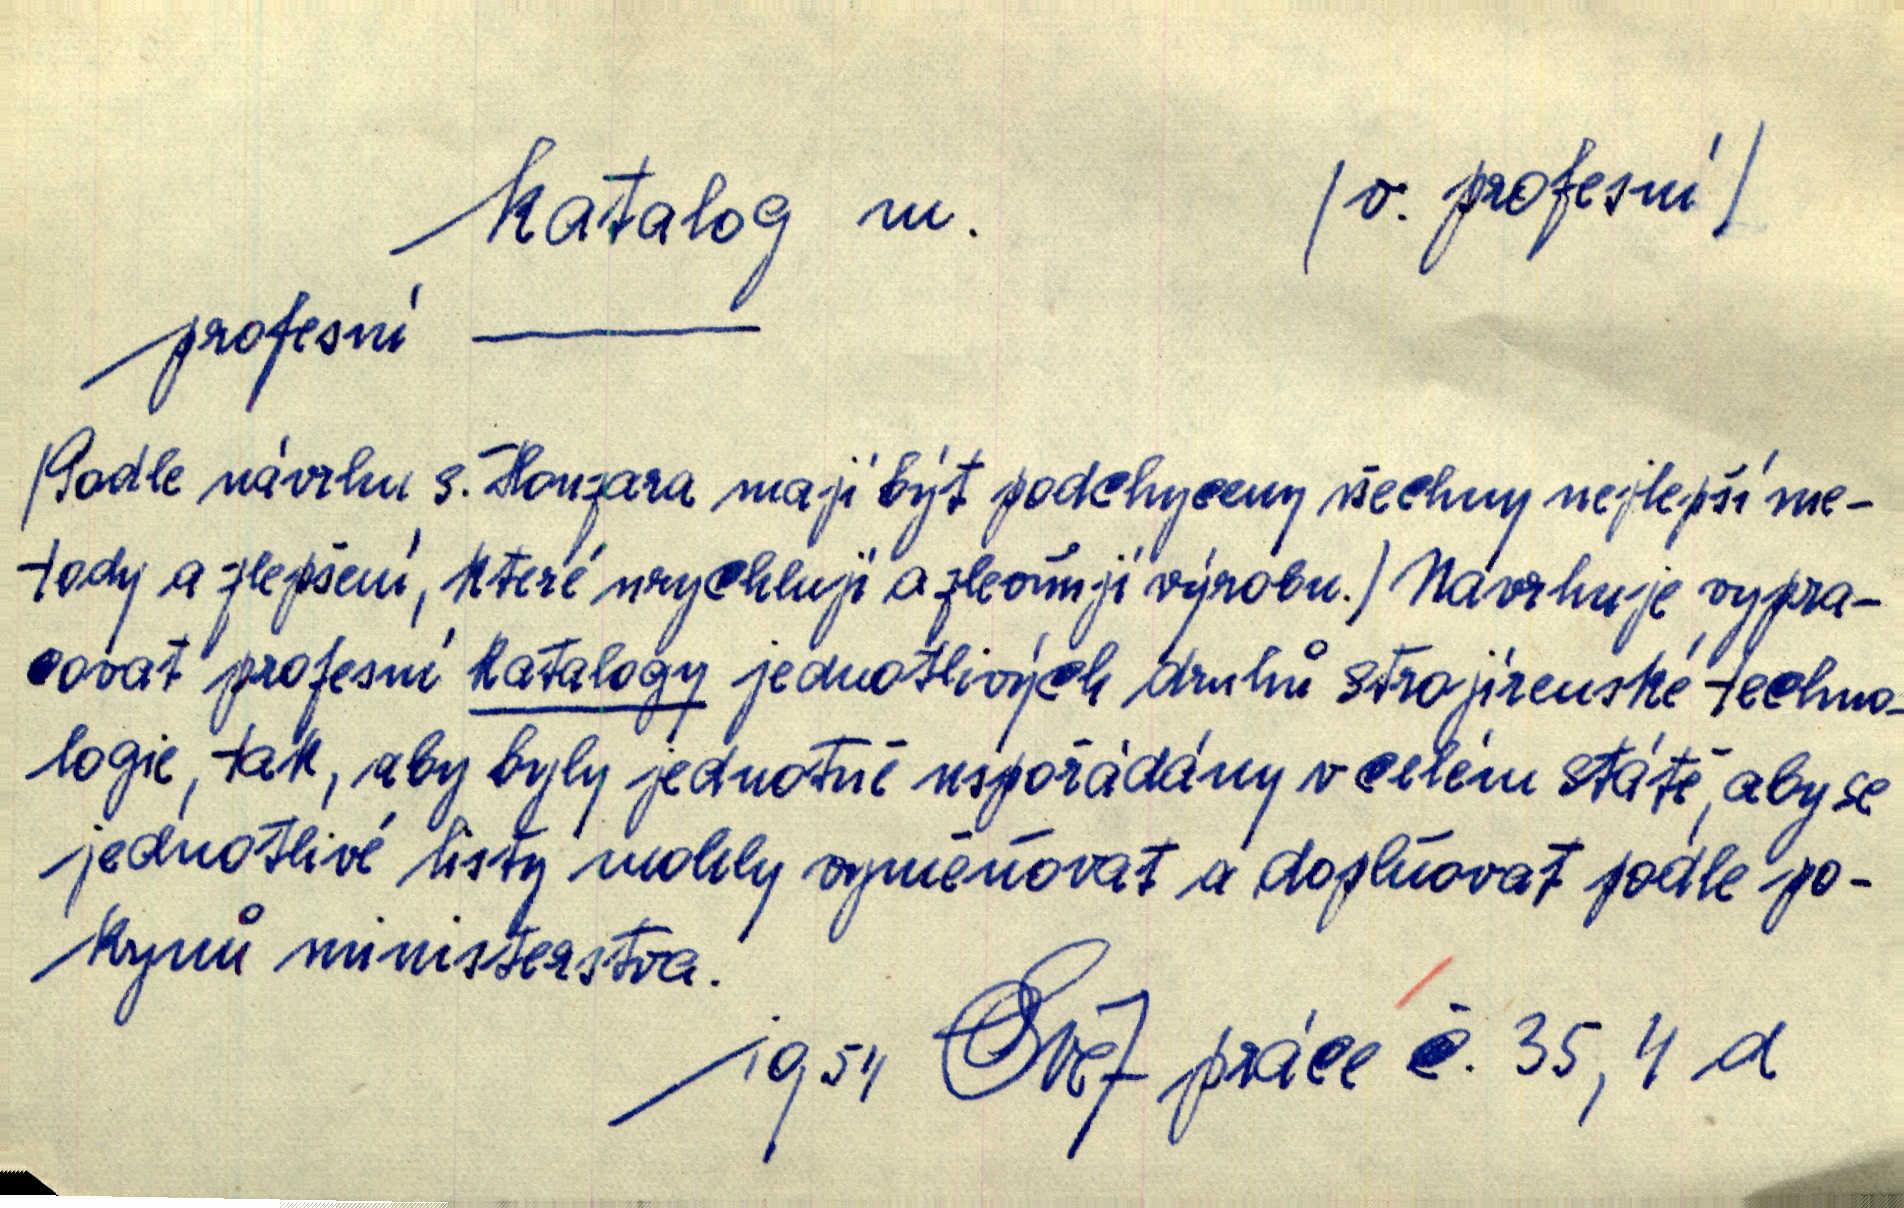 katalog m. (v. profesní)
profesní ———
(Podle návrhu s. Honzara mají být podchyceny všechny nejlepší me-
tody a zlepšení, které urychlují a zlevňují výrobu.) Navrhuje vypra-
covat profesní katalogy jednotlivých druhů strojírenské techno-
logie, tak, aby byly jednotně uspořádány v celém státě, aby se
jednotlivé listy mohly vyměňovat a doplňovat podle po-
kynů ministerstva.
1954 Svět práce č. 35, 4 d